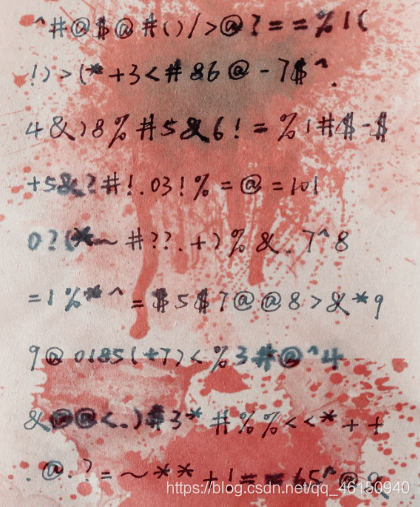 ^#@$@#()/>@?==%1(
!)>(*+3<#86@-7$^.
4&)8%#5&6!=%1#$-$
+5&?#!.03!%=@=101
0?(*~#??.+)%&.7^8
=1%*^=$5$7@@8>&*9
9@0185(+7)<%3#@^4
&@@<.)$3*#%%<<*++
.@.?=~**+!==65^@&
https://blog.csdn.net/qq_46150940